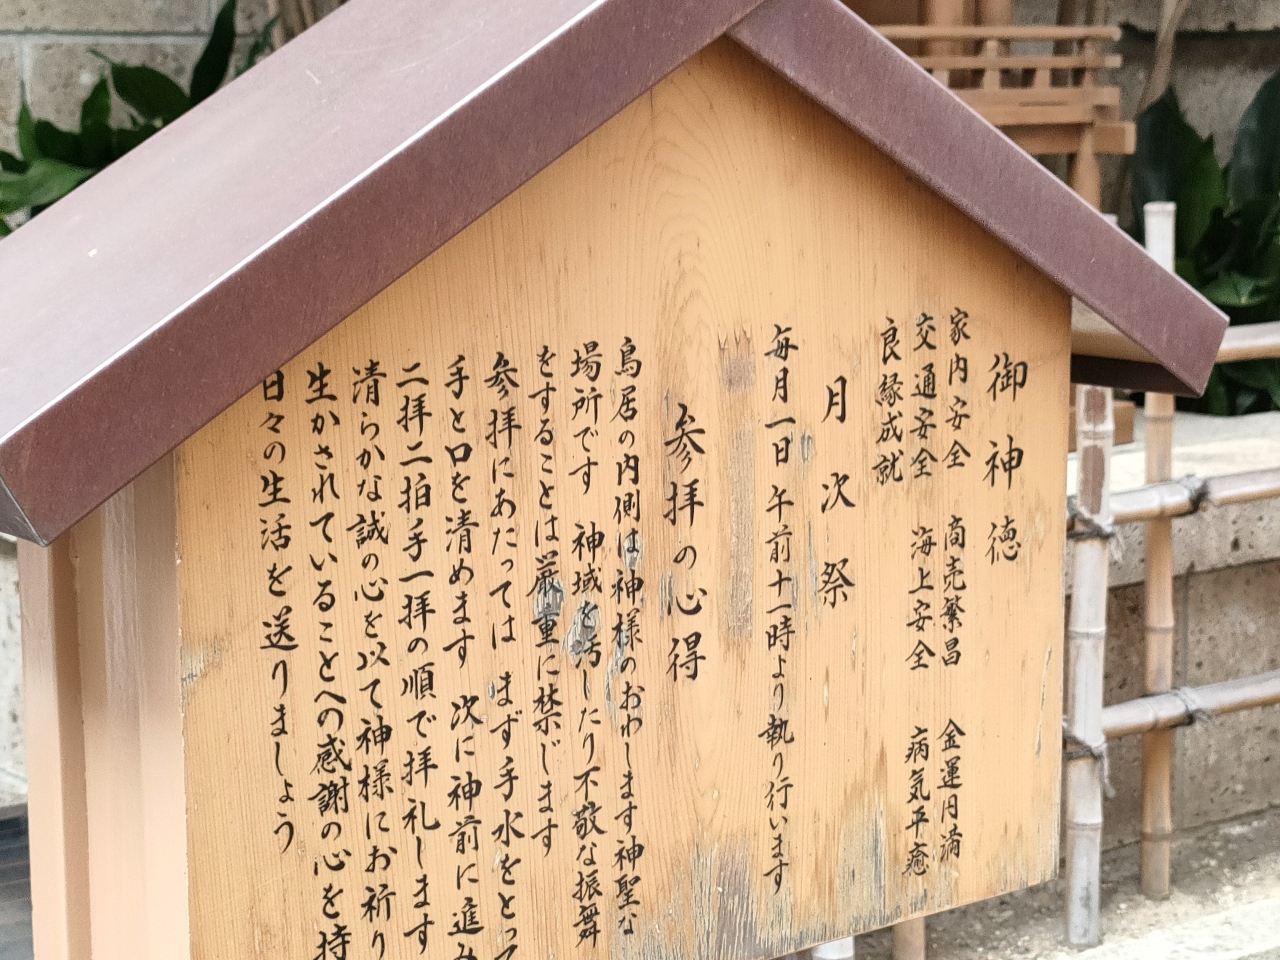 御神徳
家内安全 商売繁昌 金運円満
交通安全 海上安全 病気平癒
良縁成就
月次祭
毎月一日 午前十一時より執り行います
参拝の心得
鳥居の内側は神様のおわします神聖な
場所です 神域を汚したり不敬な振舞
をすることは厳重に禁じます
参拝にあたっては まず手水をとって
手と口を清めます 次に神前に進み
二拝二拍手一拝の順で拝礼します
清らかな誠の心を以て神様にお祈り
生かされていることへの感謝の心を持
日々の生活を送りましょう